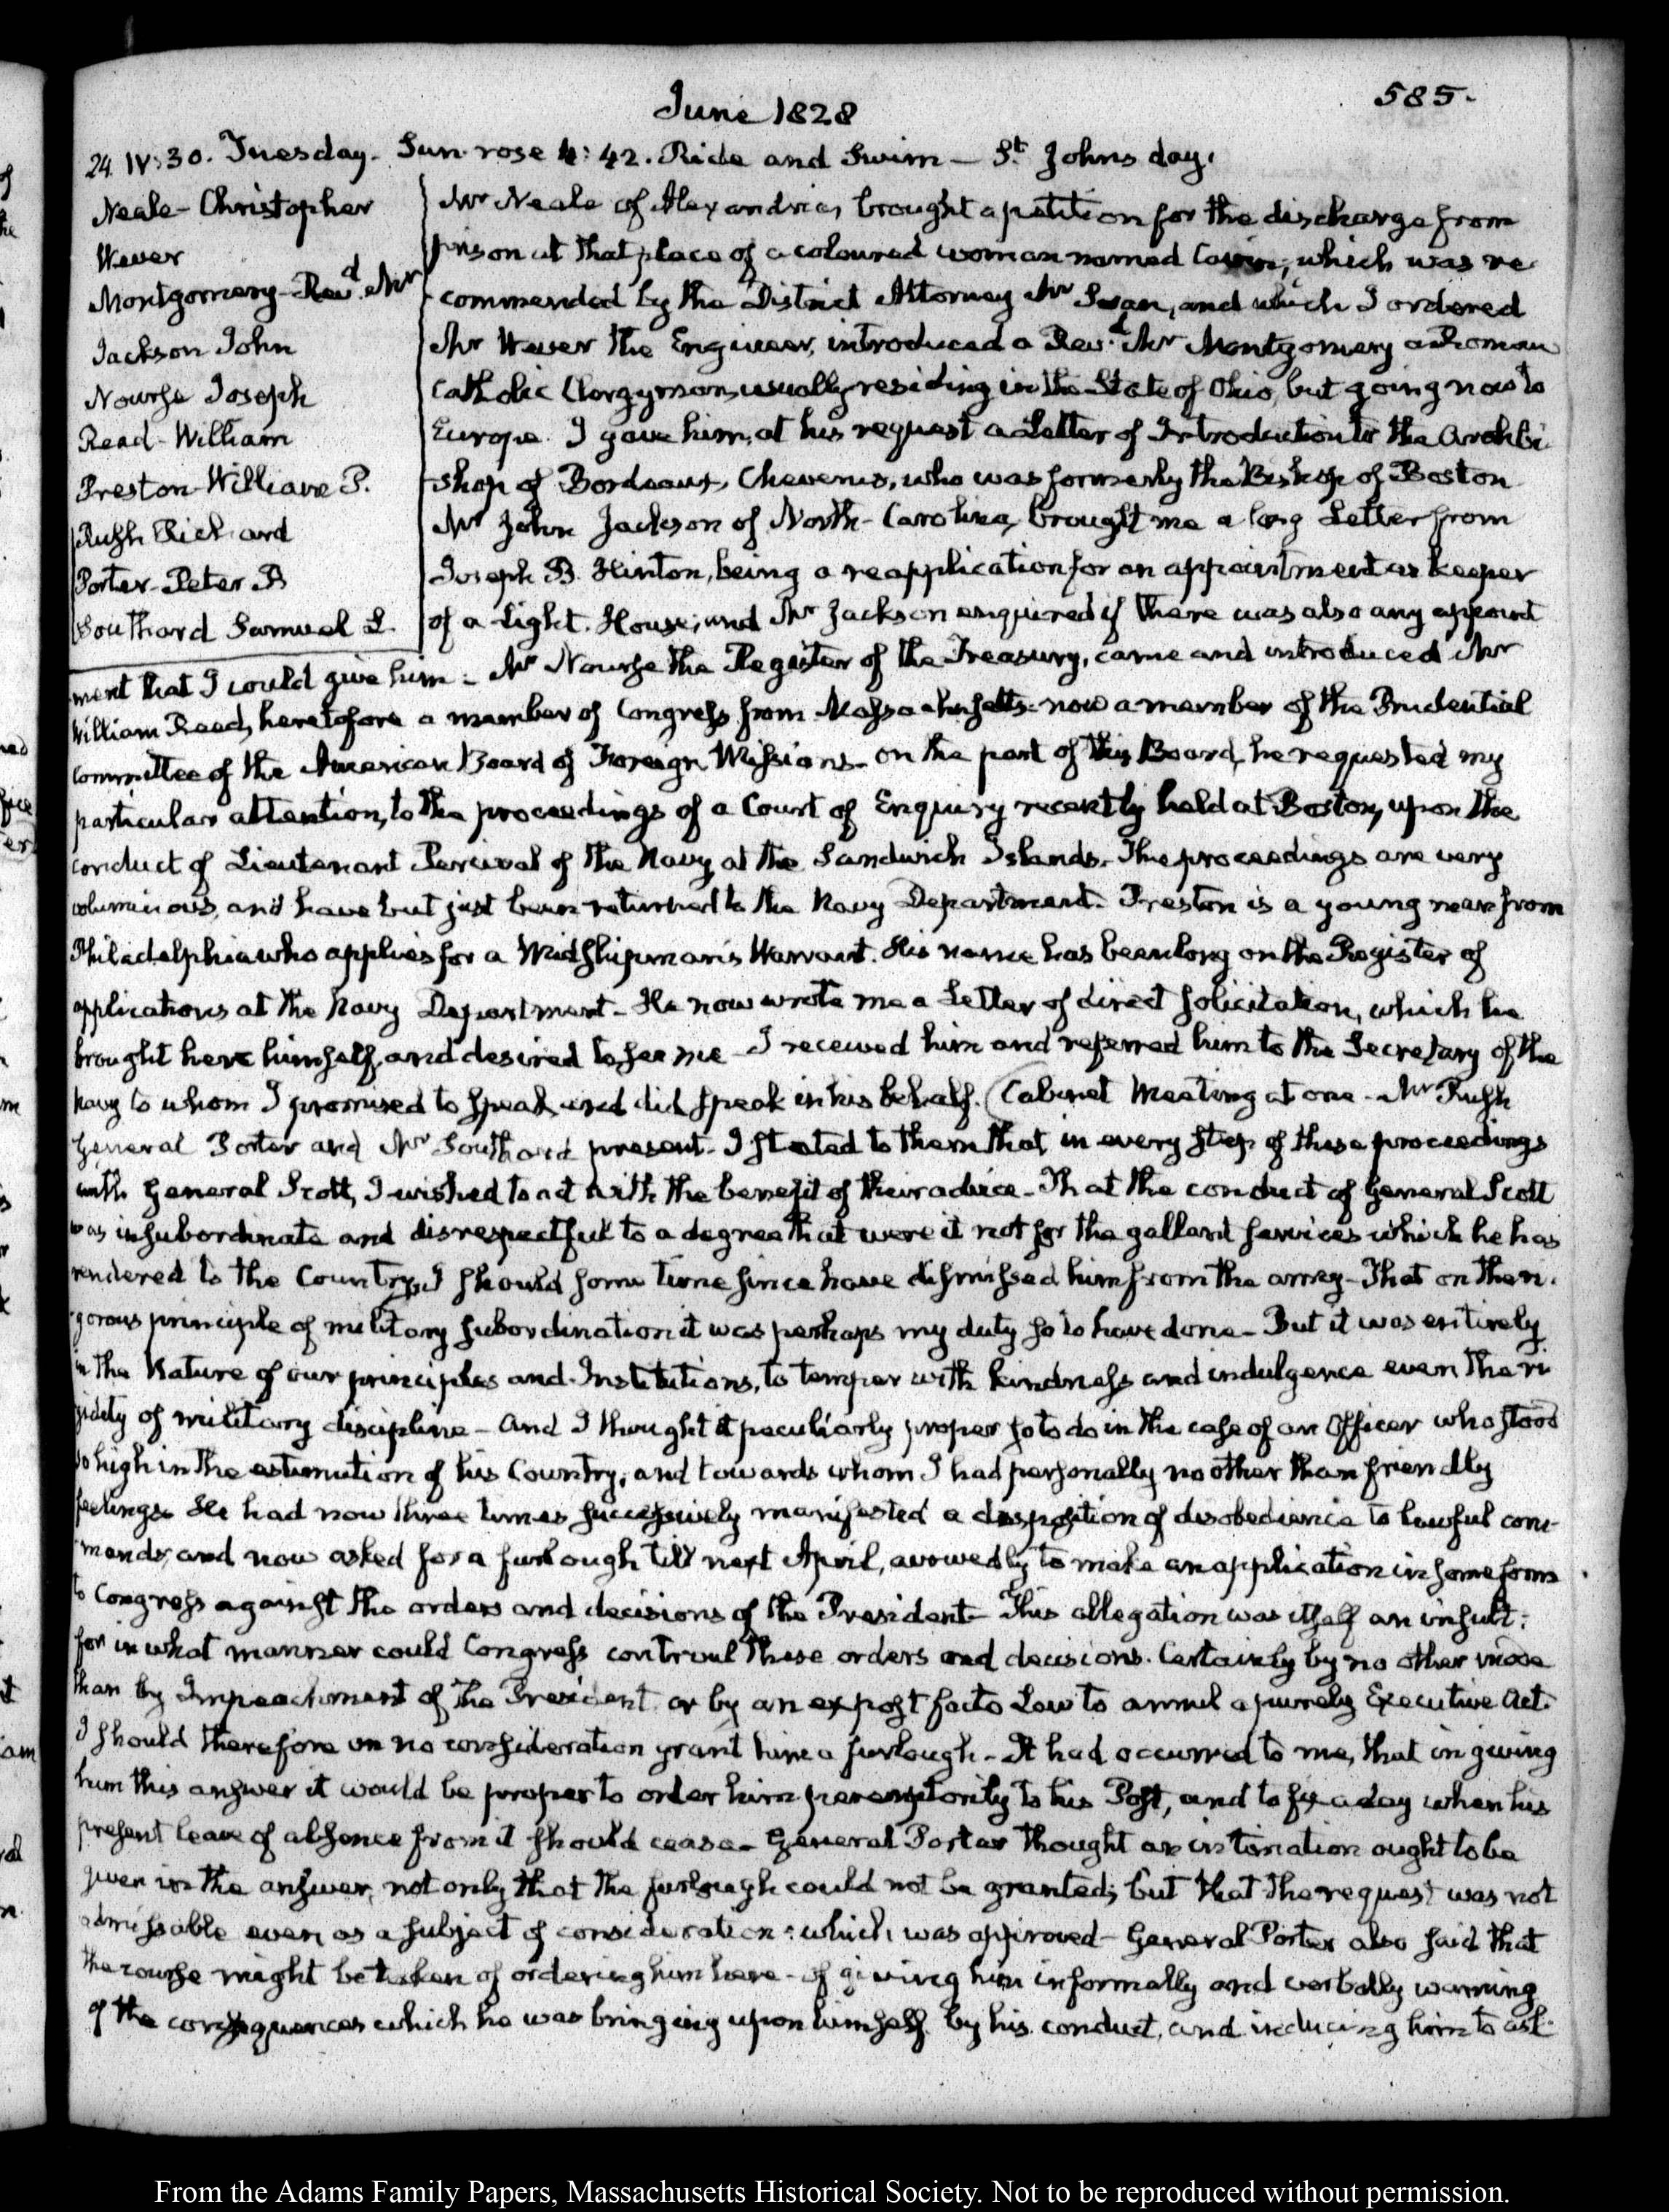 June 1828
585.
24. IV:30. Tuesday. Sun rose 4:42. Ride and Swim — St. Johns day.
Neale- Christopher
Wever
Montgomery- Revd. Mr
Jackson John
Nourse Joseph
Read- William
Preston- William P.
Rush Richard
Porter- Peter B
Southard Samuel L.
Mr Neale of Alexandria, brought a petition for the discharge from
prison at that place of a coloured woman named which was re-
commended by the District Attorney Mr Swan, and which I ordered
Mr Wever the Engineer, introduced a Revd. Mr Montgomery a Roman
Catholic Clergyman, usually residing in the State of Ohio, but going now to
Europe. I gave him, at his request a Letter of Introduction to the Archbi-
shop of Bordeaux, Cheverus, who was formerly the Bishop of Boston
Mr John Jackson of North-Carolina, brought me a long Letter from
Joseph B. Hinton, being a reapplication for an appointment as keeper
of a Light. House; and Mr Jackson enquired if there was also any appoint
ment that I could give him - Mr Nourse the Register of the Treasury, came and introduced Mr
William Read, heretofore a member of Congress from Massachusetts. now a member of the Prudential
Committee of the American Board of Foreign Missions- on the part of this Board, he requested my
particular attention, to the proceedings of a Court of Enquiry recently held at Boston, upon the
conduct of Lieutenant Percival of the Navy, at the Sandwich Islands. The proceedings are very
voluminous, and have but just been returned to the Navy Department. Preston is a young man from
Philadelphia who applies for a Midshipman's Warrant. His name has been long on the Register of
applications at the Navy Department- He now wrote me a Letter of direct solicitation, which he
brought here himself, and desired to see me - I received him and referred him to the Secretary of the
Navy to whom I promised to speak, and did speak in his behalf. (Cabinet Meeting at one - Mr Rush
General Porter and Mr Southard present- I stated to them that in every step of these proceedings
with General Scott, I wished to act with the benefit of their advice- That the conduct of General Scott
was insubordinate and disrespectful to a degree that were it not for the gallant services which he has
rendered to the Country, I should some time since have dismissed him from the army- That on the ri-
gorous principle of military subordination it was perhaps my duty so to have done- But it was entirely
in the Nature of our principles and Institutions, to temper with kindness and indulgence even the ri-
gidity of military discipline - and I thought it peculiarly proper so to do in the case of an Officer who stood
so high in the estimation of his Country, and towards whom I had personally no other than friendly
feelings. He had now three times successively manifested a disposition of disobedience to lawful com-
mands, and now asked for a furlough till next April, avowedly to make an application in some form
to Congress against the orders and decisions of the President- This allegation was itself an insult:
for in what manner could Congress controul those orders and decisions. Certainly by no other mode
than by Impeachment of the President or by an ex post facto Law to annul a purely Executive Act.
I should therefore on no consideration grant him a furlough- It had occurred to me, that in giving
him this answer it would be proper to order him peremptorily to his Post, and to fix a day when his
present leave of absence from it should cease- General Porter thought an intimation ought to be
given in the answer, not only that the furlough could not be granted; but that the request was not
admissable even as a subject of consideration: which was approved- General Porter also said that
the course might be taken of ordering him here- of giving him informally and verbally warning
of the consequences which he was bringing upon himself by his conduct, and inducing him to ask
From the Adams Family Papers, Massachusetts Historical Society. Not to be reproduced without permission.